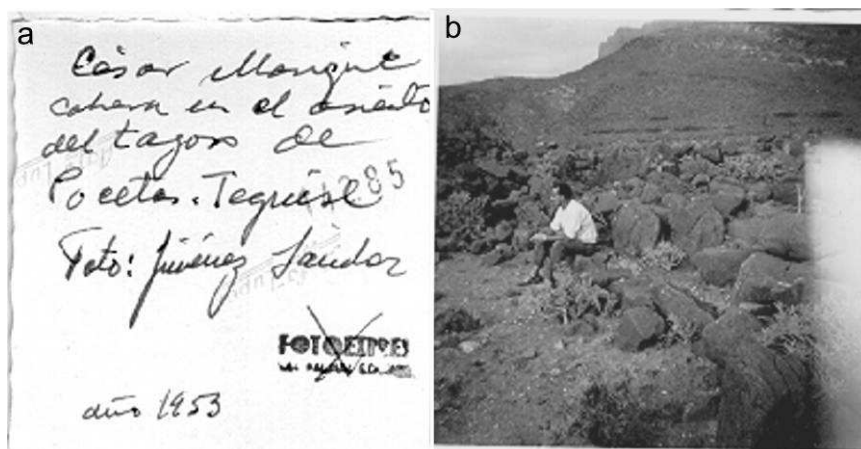 a
César Manrique
en el asiento
del tagoro de
Pocetas. Teguise
285
Foto: Jiménez Sánchez
FOTOEXPRES
año 1953
b